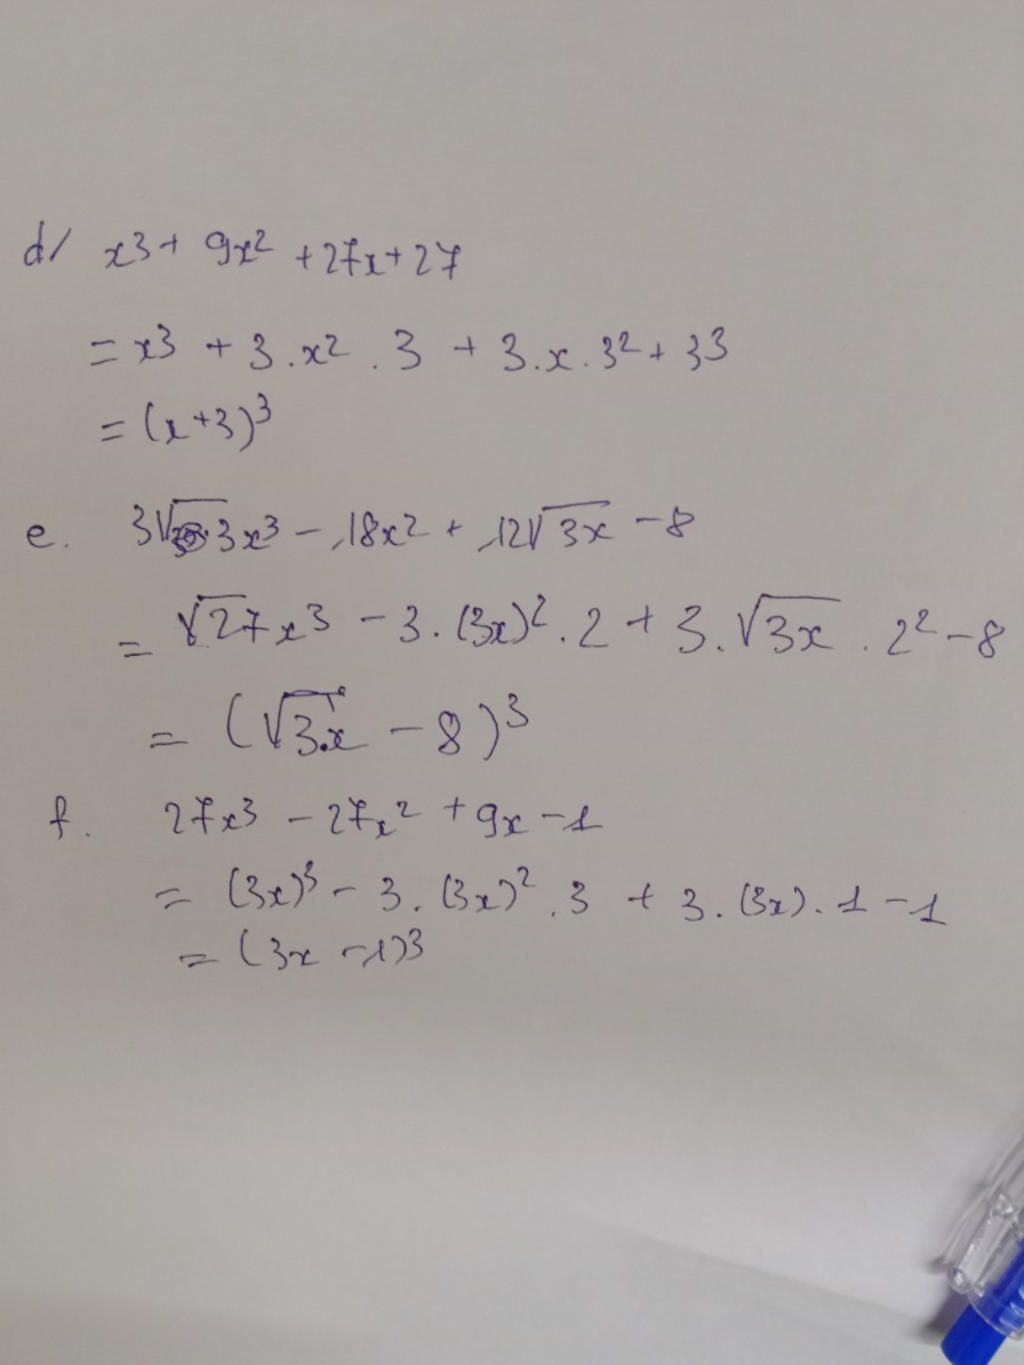 d/ x³ + 9x² + 27x + 27
= x³ + 3.x² . 3 + 3.x.3² + 3³
= (x+3)³
e. 3√3x³ - 18x² + 12√3x - 8
= √27x³ - 3.(3x)².2 + 3.√3x . 2² - 8
= (√3.x - 8)³
f. 27x³ - 27x² + 9x - 1
= (3x)³ - 3.(3x)².3 + 3.(3x).1 - 1
= (3x - 1)³